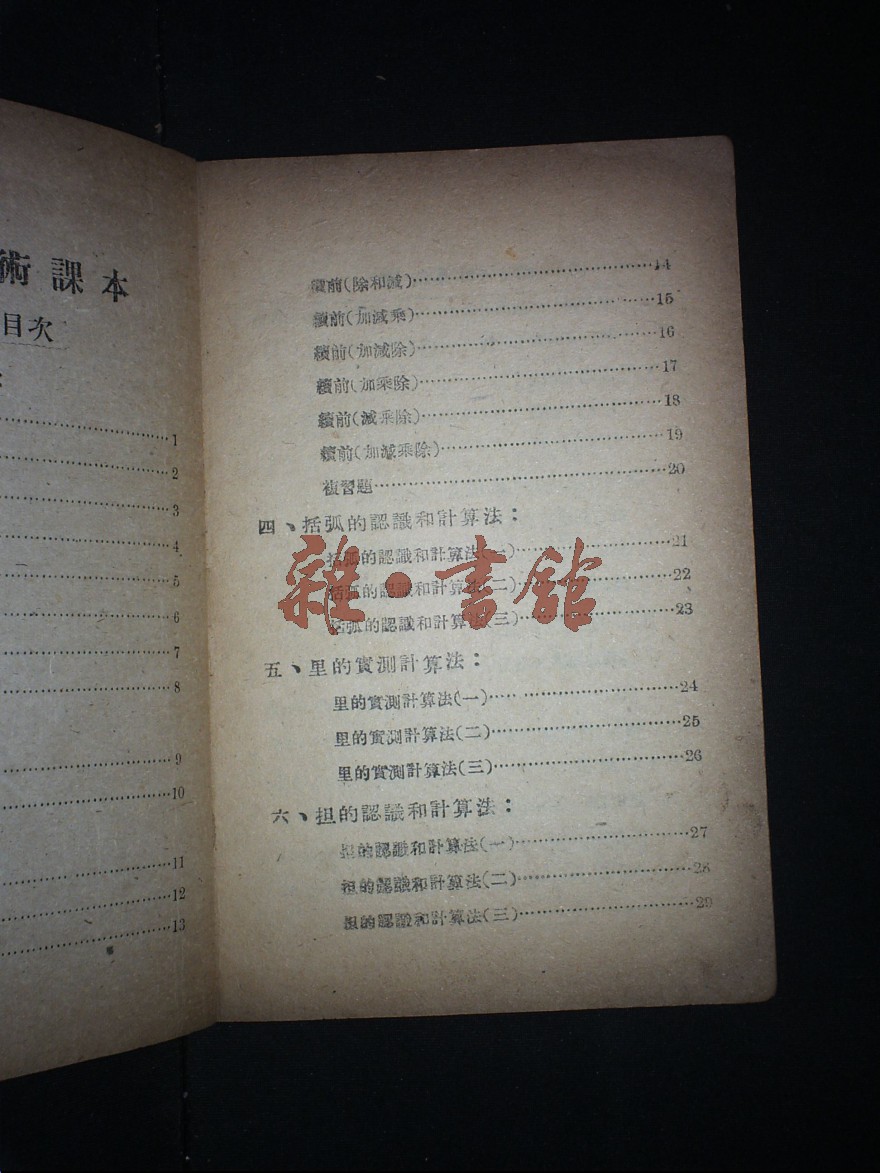 術課本
目次
1
2
3
4
5
6
7
8
9
10
11
12
13
續前(除和減)……14
續前(加減乘)……15
續前(加減除)……16
續前(加乘除)……17
續前(減乘除)……18
續前(加減乘除)……19
複習題……20
四、括弧的認識和計算法：
括弧的認識和計算法(一)……21
括弧的認識和計算法(二)……22
括弧的認識和計算法(三)……23
五、里的實測計算法：
里的實測計算法(一)……24
里的實測計算法(二)……25
里的實測計算法(三)……26
六、担的認識和計算法：
担的認識和計算法(一)……27
担的認識和計算法(二)……28
担的認識和計算法(三)……29
雜·書館